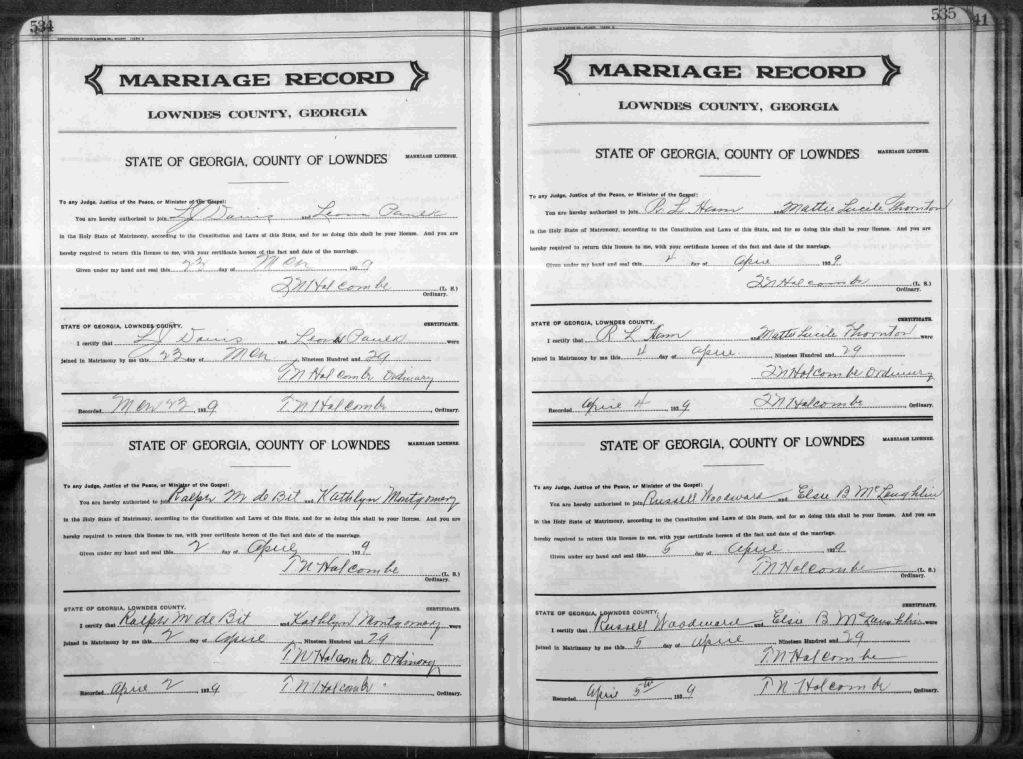 534
MARRIAGE RECORD
LOWNDES COUNTY, GEORGIA
STATE OF GEORGIA, COUNTY OF LOWNDES MARRIAGE LICENSE.
To any Judge, Justice of the Peace, or Minister of the Gospel:
You are hereby authorized to join L J Davis and Leona Paulk
in the Holy State of Matrimony, according to the Constitution and Laws of this State, and for so doing this shall be your license. And you are
hereby required to return this license to me, with your certificate hereon of the fact and date of the marriage.
Given under my hand and seal this 23 day of Mch 1929
T N Holcombe (L. S.)
Ordinary.
STATE OF GEORGIA, LOWNDES COUNTY. CERTIFICATE.
I certify that L J Davis and Leona Paulk were
joined in Matrimony by me this 23 day of Mch, Nineteen Hundred and 29
T N Holcombe Ordinary
Recorded Mch 23 1929 T N Holcombe, Ordinary.
STATE OF GEORGIA, COUNTY OF LOWNDES MARRIAGE LICENSE.
To any Judge, Justice of the Peace, or Minister of the Gospel:
You are hereby authorized to join Ralph M de Bit and Kathlyn Montgomery
in the Holy State of Matrimony, according to the Constitution and Laws of this State, and for so doing this shall be your license. And you are
hereby required to return this license to me, with your certificate hereon of the fact and date of the marriage.
Given under my hand and seal this 2 day of April 1929
T N Holcombe (L. S.)
Ordinary.
STATE OF GEORGIA, LOWNDES COUNTY. CERTIFICATE.
I certify that Ralph M de Bit and Kathlyn Montgomery were
joined in Matrimony by me this 2 day of April, Nineteen Hundred and 29
T N Holcombe Ordinary
Recorded April 2 1929 T N Holcombe, Ordinary.
535 41
MARRIAGE RECORD
LOWNDES COUNTY, GEORGIA
STATE OF GEORGIA, COUNTY OF LOWNDES MARRIAGE LICENSE.
To any Judge, Justice of the Peace, or Minister of the Gospel:
You are hereby authorized to join R L Ham and Mattie Lucile Thornton
in the Holy State of Matrimony, according to the Constitution and Laws of this State, and for so doing this shall be your license. And you are
hereby required to return this license to me, with your certificate hereon of the fact and date of the marriage.
Given under my hand and seal this 4 day of April 1929.
T N Holcombe (L. S.)
Ordinary.
STATE OF GEORGIA, LOWNDES COUNTY. CERTIFICATE.
I certify that R L Ham and Mattie Lucile Thornton were
joined in Matrimony by me this 4 day of April, Nineteen Hundred and 29
T N Holcombe Ordinary
Recorded April 4 1929 T N Holcombe, Ordinary.
STATE OF GEORGIA, COUNTY OF LOWNDES MARRIAGE LICENSE.
To any Judge, Justice of the Peace, or Minister of the Gospel:
You are hereby authorized to join Russell Woodward and Elsie B McLaughlin
in the Holy State of Matrimony, according to the Constitution and Laws of this State, and for so doing this shall be your license. And you are
hereby required to return this license to me, with your certificate hereon of the fact and date of the marriage.
Given under my hand and seal this 5 day of April 1929
T N Holcombe (L. S.)
Ordinary.
STATE OF GEORGIA, LOWNDES COUNTY. CERTIFICATE.
I certify that Russell Woodward and Elsie B McLaughlin were
joined in Matrimony by me this 5 day of April, Nineteen Hundred and 29
T N Holcombe
Recorded April 5th 1929 T N Holcombe, Ordinary.